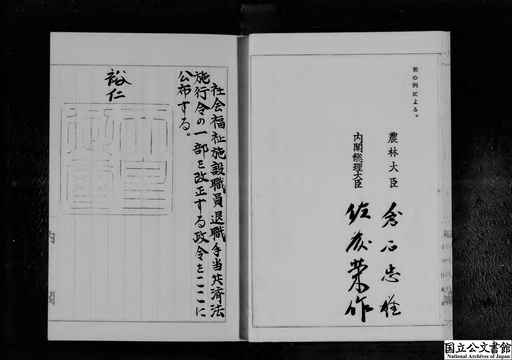 前の例による。
農林大臣 倉石忠雄
内閣総理大臣 佐藤榮作
社会福祉施設職員退職手当共済法
施行令の一部を改正する政令をここに
公布する。
裕仁
内閣
国立公文書館
National Archives of Japan